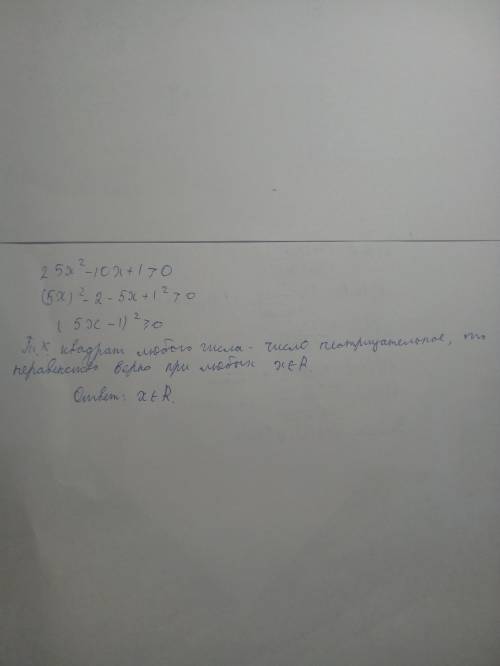 25x²-10x+1>0
(5x)²-2-5x+1²>0
(5x-1)²>0
Т.к квадрат любого числа - число неотрицательное, то
неравенство верно при любых x∈R.
Ответ: x∈R.